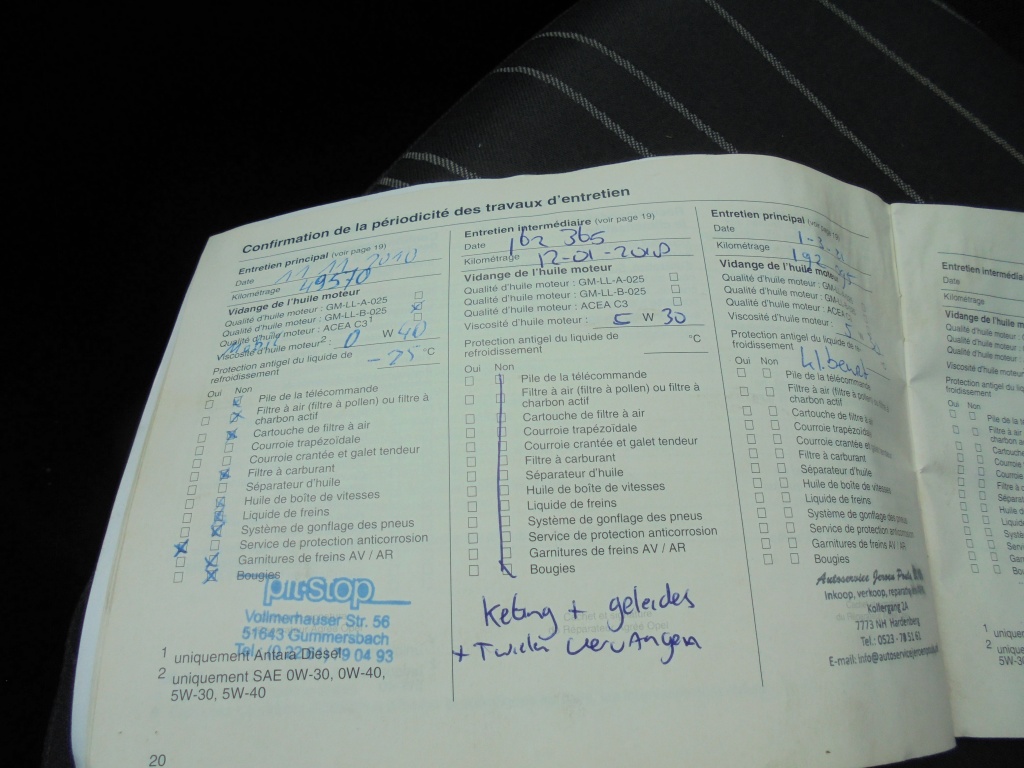 Confirmation de la périodicité des travaux d'entretien
Entretien principal (voir page 19)
Date 11.11.2010
Kilométrage 49570
Vidange de l'huile moteur
Qualité d'huile moteur : GM-LL-A-025
Qualité d'huile moteur : GM-LL-B-025
Qualité d'huile moteur : ACEA C3 1
Viscosité d'huile moteur2 : 0 W 40
Protection antigel du liquide de
refroidissement -25 °C
Oui Non
Pile de la télécommande
Filtre à air (filtre à pollen) ou filtre à
charbon actif
Cartouche de filtre à air
Courroie trapézoïdale
Courroie crantée et galet tendeur
Filtre à carburant
Séparateur d'huile
Huile de boîte de vitesses
Liquide de freins
Système de gonflage des pneus
Service de protection anticorrosion
Garnitures de freins AV / AR
Bougies
pit-stop
Vollmerhauser Str. 56
51643 Gummersbach
1 uniquement Antara Diesel
2 uniquement SAE 0W-30, 0W-40,
5W-30, 5W-40
20
Entretien intermédiaire (voir page 19)
Date 162 365
Kilométrage 12-01-2018
Vidange de l'huile moteur
Qualité d'huile moteur : GM-LL-A-025
Qualité d'huile moteur : GM-LL-B-025
Qualité d'huile moteur : ACEA C3
Viscosité d'huile moteur : 5 W 30
Protection antigel du liquide de
refroidissement °C
Oui Non
Pile de la télécommande
Filtre à air (filtre à pollen) ou filtre à
charbon actif
Cartouche de filtre à air
Courroie trapézoïdale
Courroie crantée et galet tendeur
Filtre à carburant
Séparateur d'huile
Huile de boîte de vitesses
Liquide de freins
Système de gonflage des pneus
Service de protection anticorrosion
Garnitures de freins AV / AR
Bougies
Keting + geleides
+ Twielen vervangen
Entretien principal
Date 1-3-21
Kilométrage
Vidange de l'huile moteur
Qualité d'huile moteur :
Qualité d'huile moteur :
Qualité d'huile moteur :
Viscosité d'huile moteur :
Protection antigel du liquide de
froidissement
Oui Non
Pile de la télécommande
Filtre à air (filtre à pollen) ou filtre à
charbon actif
Cartouche de filtre à
Courroie trapézoïdale
Courroie crantée et galet tendeur
Filtre à carburant
Séparateur d'huile
Huile de boîte de vitesses
Liquide de freins
Système de gonflage des pneus
Service de protection anticorrosion
Garnitures de freins AV / AR
Bougies
Autoservice Jeroen
Inkoop, verkoop,
Kollergang 2A
7773 NH Hardenberg
Tel.: 0523 -
E-mail:
Entretien
Date
Kilométrage
Vidange de l'huile
Qualité d'huile
Qualité d'huile
Qualité d'huile
Viscosité d'huile
Protection antigel
refroidissement
Oui Non
Pile de
Filtre à
charbon
1
2